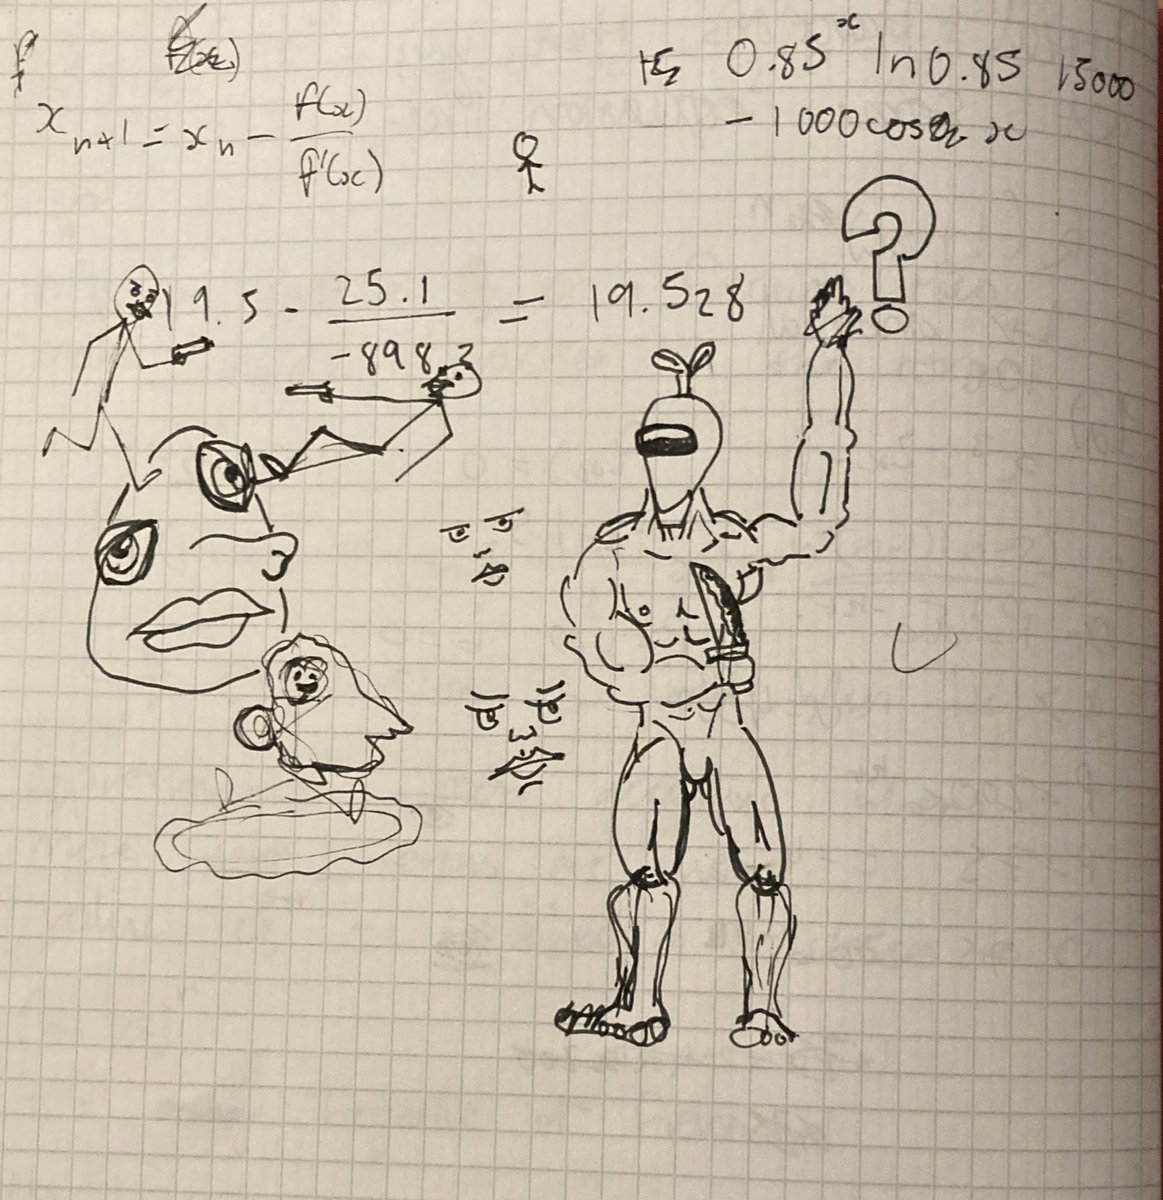 f
f(x)
x_{n+1} = x_n - \frac{f(x)}{f'(x)}
0.85^x ln 0.85 15000
- 1000 cos x
19.5 - \frac{25.1}{-898.2} = 19.528
?